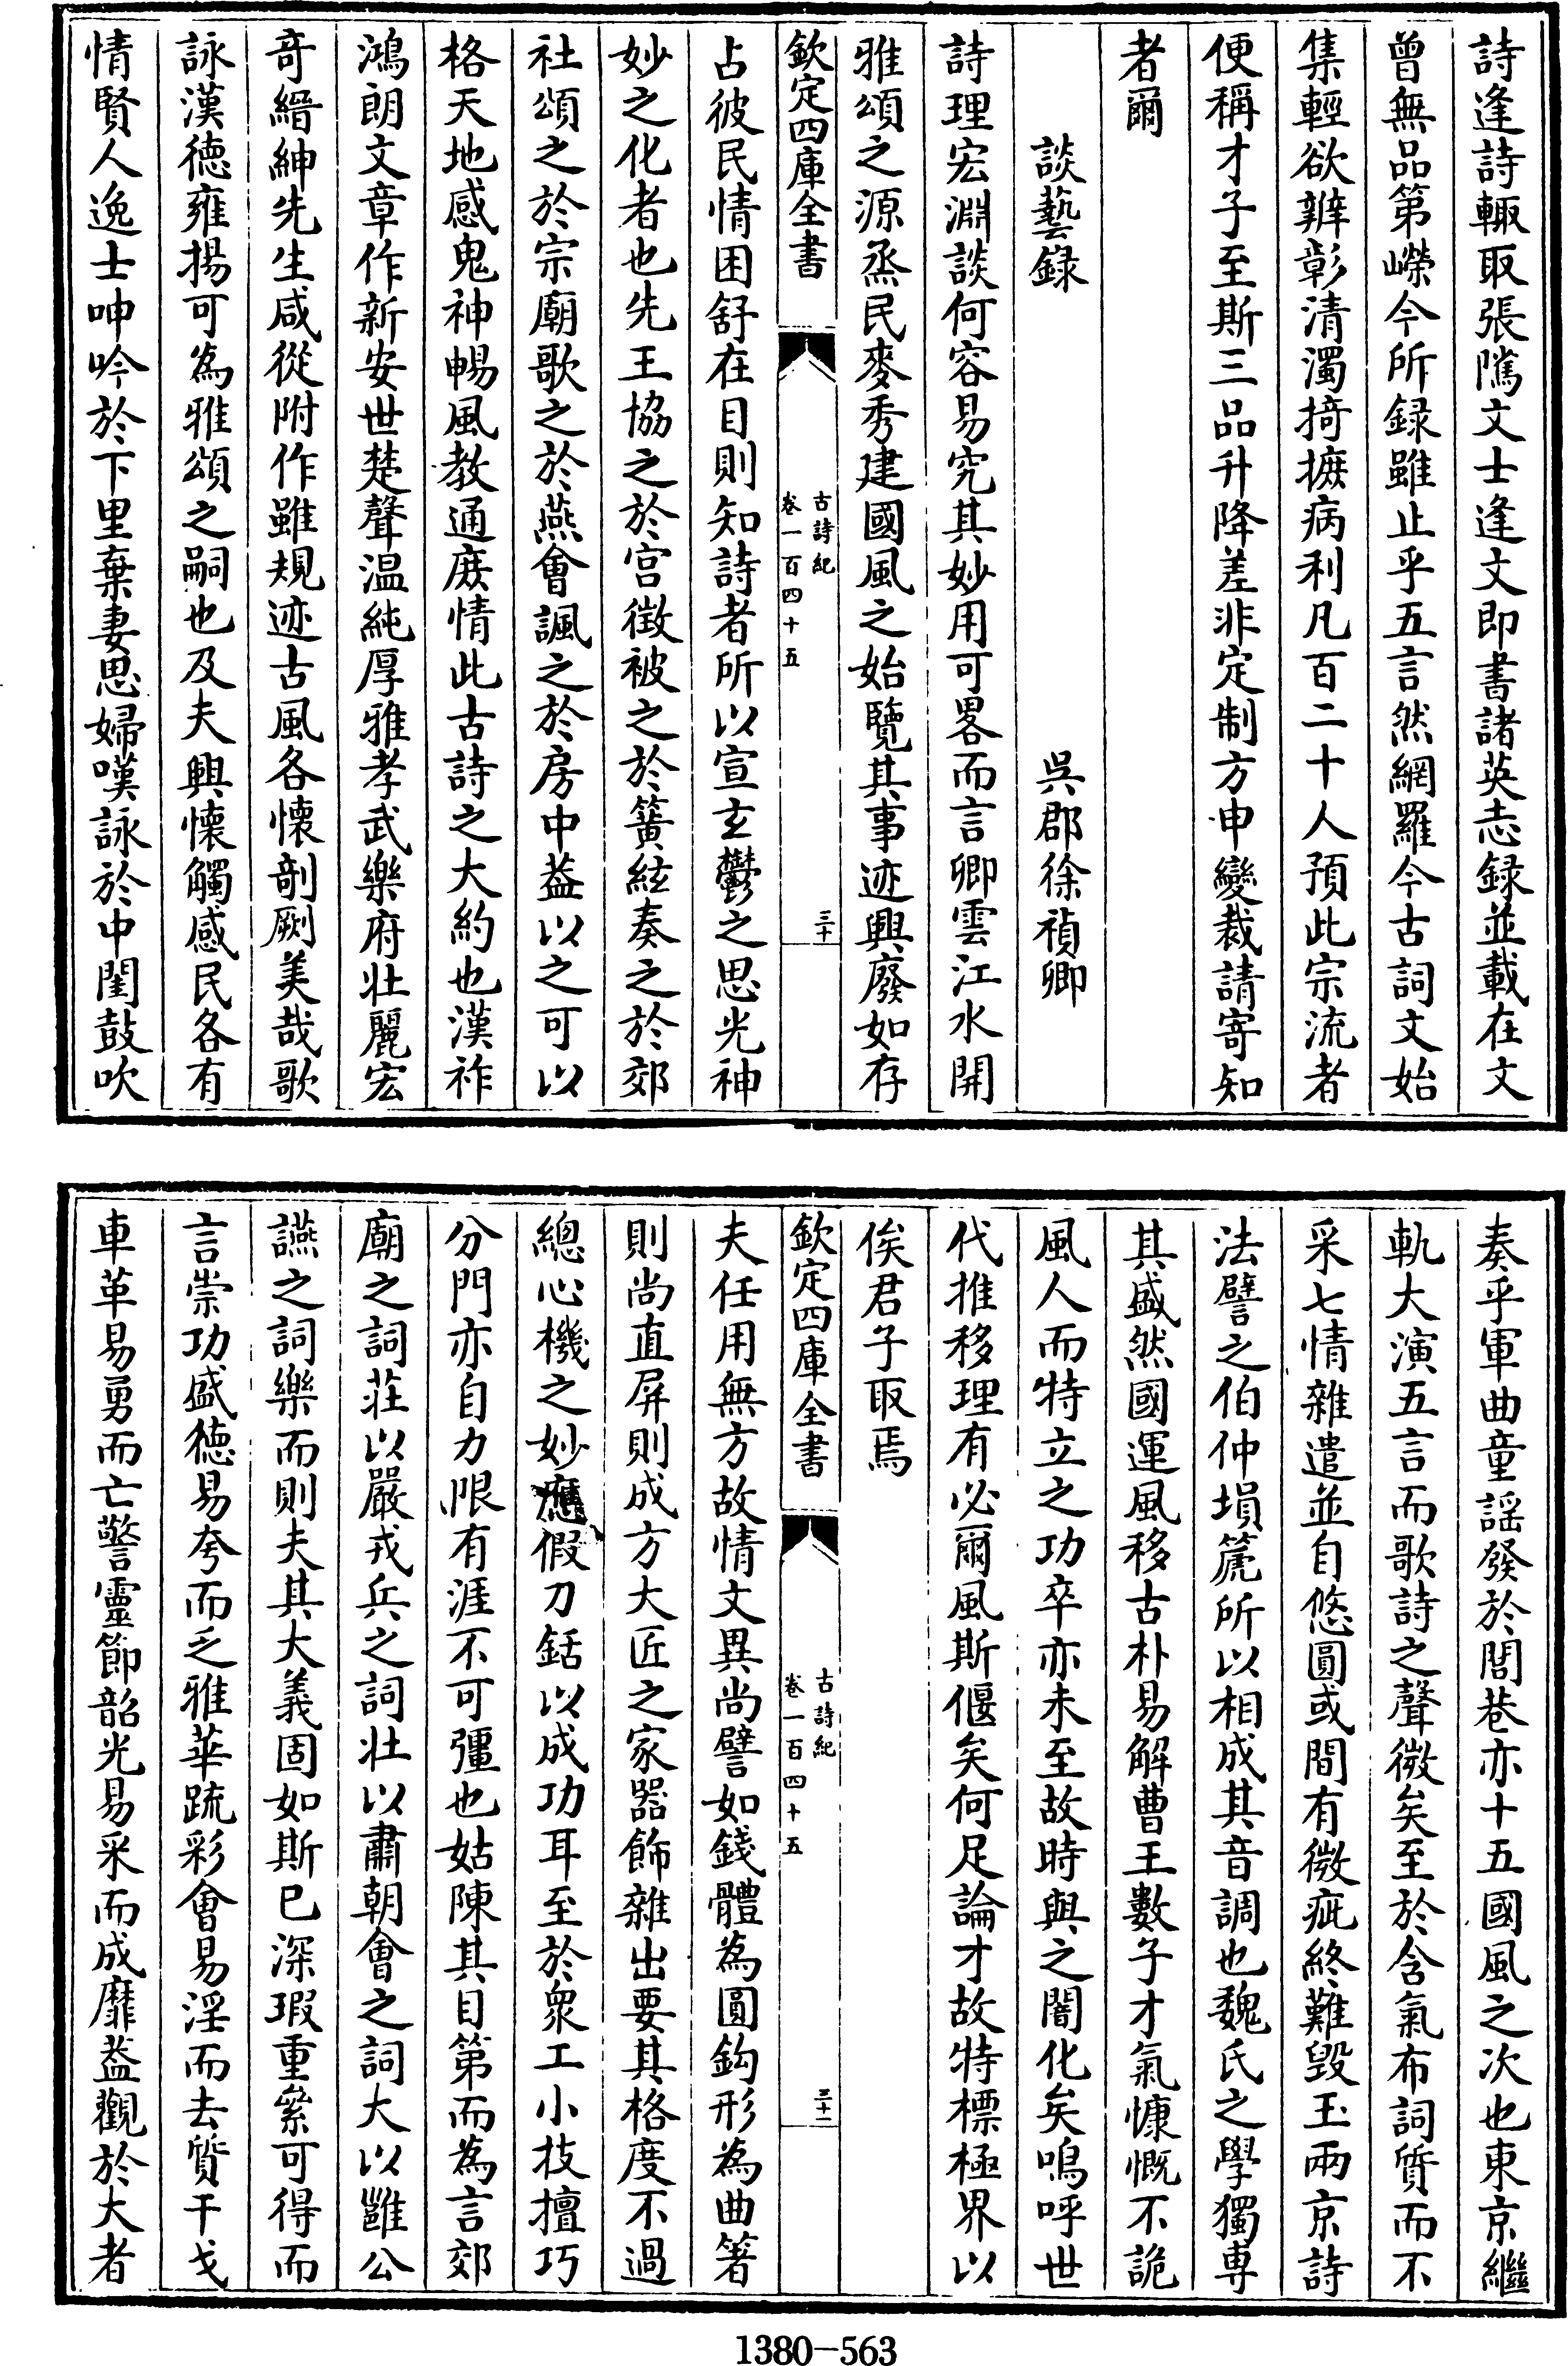 詩逢詩輒取張隲文士逢文即書諸英志録並載在文
曾無品第嶸今所録雖止乎五言然網羅今古詞文始
集輕欲辨彰清濁掎摭病利凡百二十人預此宗流者
便稱才子至斯三品升降差非定制方申變裁請寄知
者爾
談藝録
吳郡徐禎卿
詩理宏淵談何容易究其妙用可畧而言卿雲江水開
雅頌之源烝民麥秀建國風之始覽其事迹興廢如存
欽定四庫全書
古詩紀
卷一百四十五
三十
占彼民情困舒在目則知詩者所以宣玄鬱之思光神
妙之化者也先王協之於宫徴被之於簧絃奏之於郊
社頌之於宗廟歌之於燕會諷之於房中葢以之可以
格天地感鬼神暢風教通庶情此古詩之大約也漢祚
鴻朗文章作新安世楚聲温純厚雅孝武樂府壯麗宏
奇縉紳先生咸從附作雖規迹古風各懷剞劂美哉歌
詠漢徳雍揚可為雅頌之嗣也及夫興懷觸感民各有
情賢人逸士呻吟於下里棄妻思婦嘆詠於中閨鼓吹
奏乎軍曲童謡發於閭巷亦十五國風之次也東京繼
軌大演五言而歌詩之聲微矣至於含氣布詞質而不
采七情雜遣並自悠圓或間有微疵終難毁玉兩京詩
法譬之伯仲塤箎所以相成其音調也魏氏之學獨専
其盛然國運風移古朴易解曹王數子才氣慷慨不詭
風人而特立之功卒亦未至故時與之闇化矣嗚呼世
代推移理有必爾風斯偃矣何足論才故特標極界以
俟君子取焉
欽定四庫全書
古詩紀
卷一百四十五
三十一
夫任用無方故情文異尚譬如錢體為圓鈎形為曲箸
則尚直屏則成方大匠之家器飾雜出要其格度不過
總心機之妙應假刀銛以成功耳至於衆工小技擅巧
分門亦自力限有涯不可彊也姑陳其目第而為言郊
廟之詞莊以嚴戎兵之詞壯以肅朝會之詞大以雝公
讌之詞樂而則夫其大義固如斯已深瑕重纇可得而
言崇功盛徳易夸而乏雅華疏彩會易淫而去質干戈
車革易勇而亡警靈節韶光易采而成靡葢觀於大者
1380-563